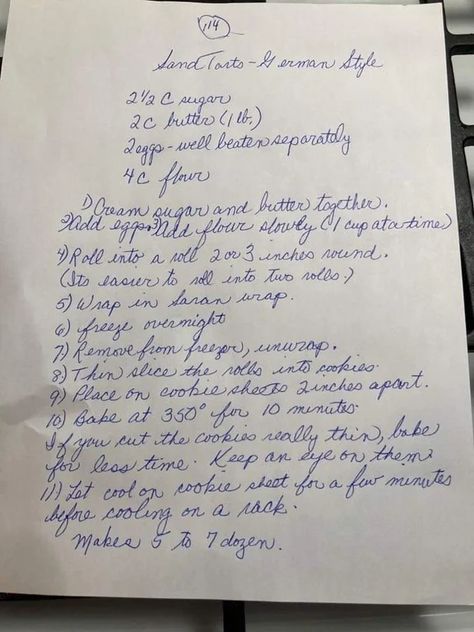 114
Sand Tarts - German Style
2 1/2 C sugar
2 C butter (1 lb.)
2 eggs - well beaten separately
4 C flour
1) Cream sugar and butter together.
2) Add eggs. 3) Add flour slowly (1 cup at a time)
4) Roll into a roll 2 or 3 inches round.
(Its easier to roll into two rolls.)
5) Wrap in Saran wrap.
6) freeze overnight
7) Remove from freezer, unwrap.
8) Thin slice the rolls into cookies.
9) Place on cookie sheets 2 inches apart.
10) Bake at 350° for 10 minutes.
If you cut the cookies really thin, bake
for less time. Keep an eye on them.
11) Let cool on cookie sheet for a few minutes
before cooling on a rack.
Makes 5 to 7 dozen.